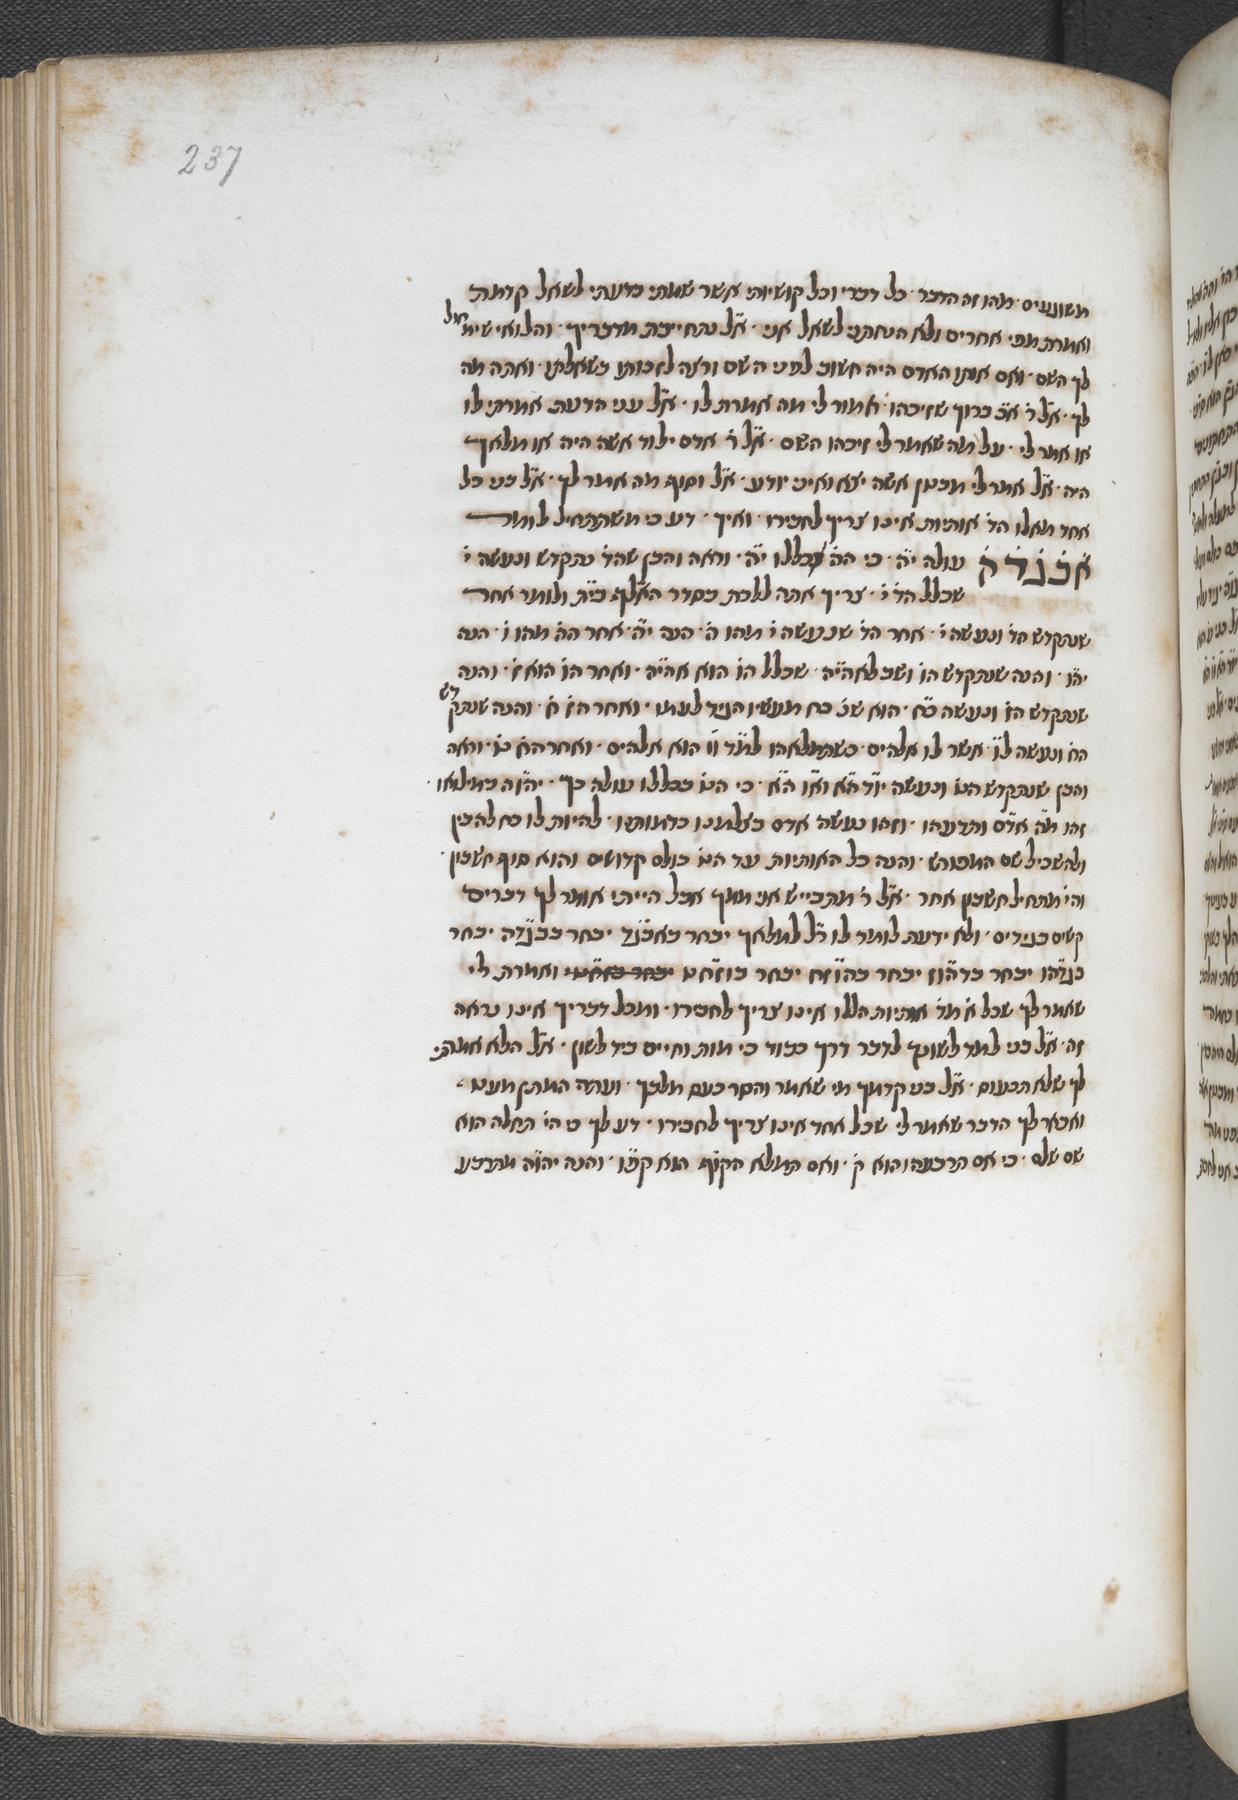 237
משוגעים · מהו זה הדבר · כל דברי וכל קושיותי אשר שמתי בדעתי לשאל קדמת
ואמרת מפי אחרים ולא הנחתני לשאל אני · א״ל נתחייבת מדבריך · והלואי שימחול
לך השם · ואם אותו האדם היה חשוב לפני השם ורצה לזכותו בשאלתו · ואתה מה
לך · א״ל ר׳ א״כ ברוך שזיכהו · אמור לי מה אמרת לו · א״ל עניי הדעת אמרתי לו
או אמר לי · על מה שאמר לי זיכהו השם · א״ל ר׳ אדם ילוד אשה היה או מלאך
היה · א״ל אמר לי מבטן אשה יצא ואיני יודע · א״ל וסוף מה אמר לך · א״ל בני כל
אחד מאלו הד׳ אותיות אינו צריך לחבירו · ואיך · דע כי משתתחיל לומר
אבגדה עולה י״ה · כי הה׳ בכללו י״ה · וראה והבן שהד׳ נתקדש ונעשה י׳
שכלל הד׳ י׳ · צריך אתה ללכת בסדר האלף בי״ת ולומר אחר
שנתקדש הד׳ ונעשה י׳ · אחר הד׳ שנעשה י׳ מהו ה׳ · הנה י״ה · אחר הה׳ מהו ו׳ · הנה
יה״ו · והנה שנתקדש הו׳ ושב לאהי״ה · שכלל הו׳ הוא אהי״ה · ואחר הו׳ הוא ז׳ · והנה
שנתקדש הז׳ ונעשה כ״ח · הוא שנ׳ כח מעשיו הגיד לעמו · ואחר הז׳ ח׳ · והנה שנתקדש
הח׳ ונעשה ל״ו · אשר לו אלהים · כשתמלאהו למ״ד ו״ו הוא אלהים · ואחר הח׳ ט׳ · וראה
והבן שנתקדש הט׳ ונעשה יו״ד ה״א וא״ו ה״א · כי הט׳ בכללו עולה כך · יהו״ה במילואו ·
זהו מ״ה אד״ם ותדעהו · וזהו נעשה אדם בצלמנו כדמותנו · להיות לו כח להבין
ולהשכיל שם המפורש · והנה כל האותיות עד הט׳ כולם קדושים והוא סוף חשבון ·
והי׳ מתחיל חשבון אחר · א״ל ר׳ מתבייש אני ממך אבל הייתי אומר לך דברים
קשים כגידים · ולא ידעת לומר לו ר״ל למלאך יבחר באבג״ד יבחר בבגד״ה יבחר
בגדה״ו יבחר בדהו״ז יבחר בהוז״ח יבחר בוזח״ט ואמרת לי
שאמר לך שכל א׳ מד׳ אותיות הללו אינו צריך לחבירו · ומכל דבריך אינו נראה
זה · א״ל בני למד לשונך לדבר דרך כבוד כי מות וחיים ביד לשון · א״ל הלא אמרתי
לך שלא תכעוס · א״ל בני קדמך מי שאמר והסר כעס מלבך · ועתה המתן מעט ·
ואבאר לך הדבר שאמר לי שכל אחד אינו צריך לחבירו · דע לך כי הי׳ תחלה הוא
שם שלם · כי אם תרבעהו הוא ק׳ · ואם תמלא הקו״ף הוא קפ״ו · והנה יהו״ה מתרבע